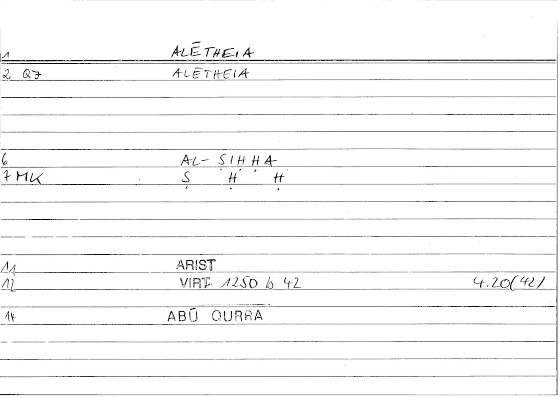 1 ALĒTHEIA
2 Q7 ALĒTHEIA
6 AL- ṢIḤḤA
7 MK Ṣ Ḥ Ḥ
11 ARIST
12 VIRT 1250 b 42 4.20(42)
14 ABŪ QURRA